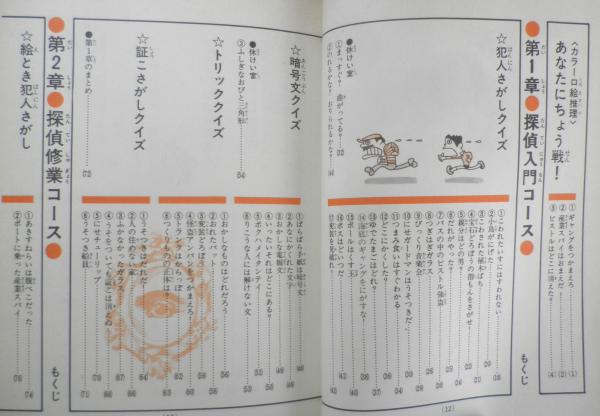 〈カラー口絵推理〉
あなたにちょう戦！
①ギャングをつかまえろ
②産業スパイはおまえだ
③ピストルはどこに消えた？
第1章●探偵入門コース
もくじ
☆犯人さがしクイズ
①こわれたいすにはすわれない
③こわされた植木ばち
④宝石どろぼうの指もんをさがせ！
⑤親分はどの男？
⑦バスの中のピストル強盗
⑧つぎはぎガラス
⑨びっくり音楽会
⑩にせガードマンはうそつきだ
⑪つまみ食いはすぐわかる
⑫どこにかくした？
⑬ゆでたまごはどれ？
⑭海賊のギャングをにがすな！
⑯ボスはどいつだ
⑰変装を見破れ！
●休けい室
①まっすぐ？ 曲がってる？
②のれるかな？ おりられるかな？
(12)
☆暗号文クイズ
①ばらばら手紙は暗号文
②あなにかくれた文字
③おかしな電報
④いったいそれはどこにある？
⑤ボクハメイタンテイ
⑥りこうな人には解けない文
●休けい室
③ふしぎなおびと三角形
☆トリッククイズ
①おかしなものはどれだろう
②おれたバット
③変装どろぼう
④怪盗アンパンをつかまえろ！
⑤トランクはからっぽ
⑥つくりものの正体は？
☆証こさがしクイズ
①うそつきはだれだ！
②人の住めない家
③ふかなかったガラス
④うそをついても証こは消えぬ
⑤にせチューリップ
⑥うそつき船員
●第1章のまとめ
第2章●探偵修業コース
もくじ
☆絵とき犯人さがし
①あきすねらいは腹ぺこだった
②ボートに乗った産業スパイ